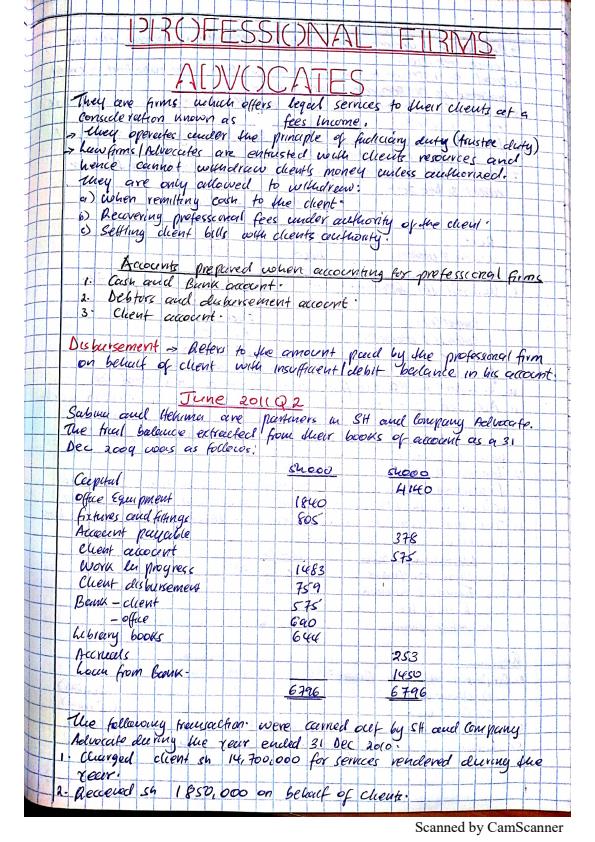 PROFESSIONAL FIRMS
ADVOCATES
They are firms which offers legal services to their clients at a
consideration known as fees income.
→ They operates under the principle of fudiciary duty (trustee duty)
→ Lawfirms/Advocates are entrusted with clients resources and
hence cannot withdraw clients money unless authorized.
They are only allowed to withdraw:
a) When remitting cash to the client.
b) Recovering professional fees under authority of the client.
c) Settling client bills with clients authority.
Accounts prepared when accounting for professional firms
1. Cash and Bank account.
2. Debtors and disbursement account.
3. Client account.
Disbursement → Refers to the amount paid by the professional firm
on behalf of client with insufficient/debit balance in his account.
June 2011 Q 2
Sabina and Hekima are partners in SH and Company Advocate.
The trial balance extracted from their books of account as a 31
Dec 2009 was as follows:
sh000 sh000
Capital 4140
Office Equipment 1840
fixtures and fittings 805
Account payable 378
Client account 575
Work in progress 1483
Client disbursement 759
Bank - client 575
- office 690
Library books 644
Accruals 253
Loan from Bank. 1450
6796 6796
The following transaction were carried out by SH and Company
Advocate during the year ended 31 Dec 2010.
1. Charged client sh 14,700,000 for services rendered during the
year.
2. Received sh 1850,000 on behalf of clients.
Scanned by CamScanner